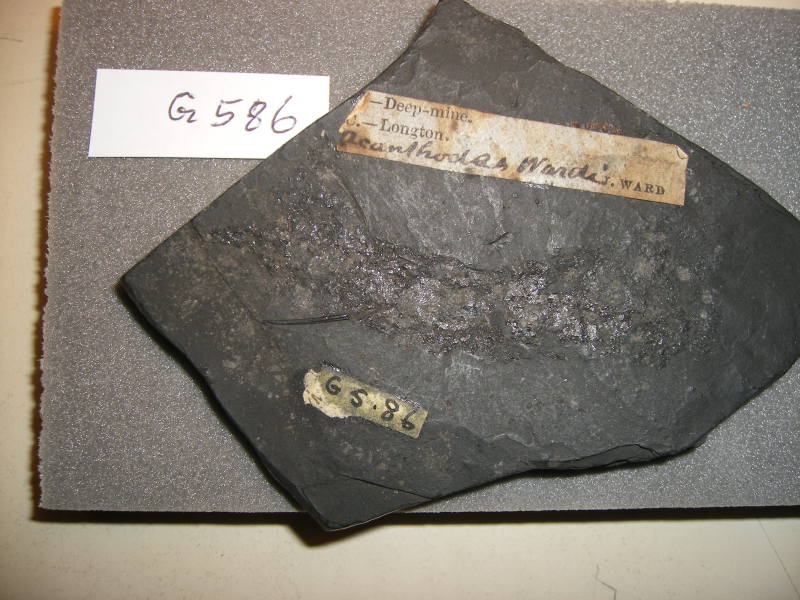 G 586
—Deep-mine.
—Longton.
Acanthodes Wardi
J. WARD
G 5.86